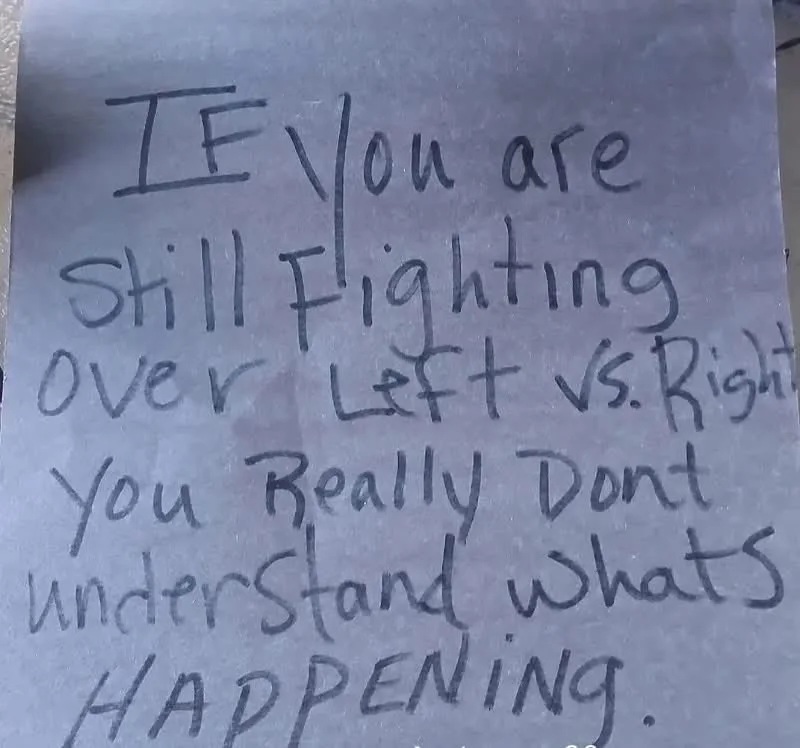 IF You are
Still Fighting
over Left vs. Right
you Really Dont
understand whats
HAPPENiNg.